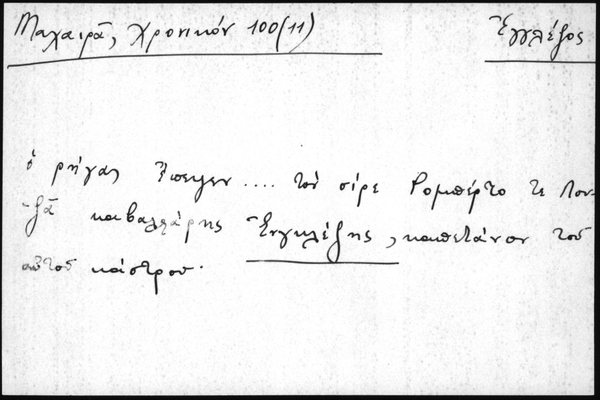 Μαχαιρᾶ, Χρονικόν 100 (11)
Ἐγγλέζος
ὁ ρήγας ἔπεψεν .... τὸν σίρε Ρομπέρτο τε Λου-
ζᾶ καβαλλάρης Ἐνγκλέζης, καπετάνον τοῦ
αὐτοῦ κάστρου.